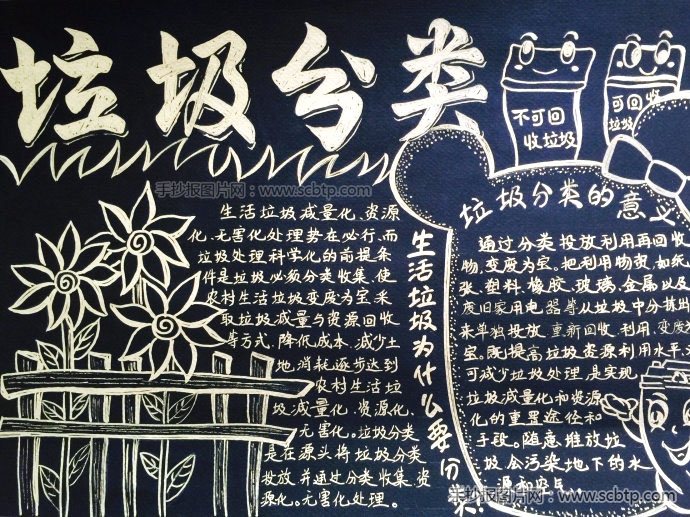 垃圾分类
不可回
收垃圾
可回收
垃圾
手抄报图片网:www.scbtp.com
生活垃圾减量化、资源
化、无害化处理势在必行,而
垃圾处理科学化的前提条
件是垃圾必须分类收集,使
农村生活垃圾变废为宝,采
取垃圾减量与资源回收
等方式,降低成本,减少土
地消耗逐步达到
农村生活垃
圾减量化、资源化、
无害化。垃圾分类
是在源头将垃圾分类
投放,并通过分类收集、资
源化、无害化处理。
生活垃圾为什么要分
垃圾分类的意义
通过分类投放利用再回收
物,变废为宝。把利用物资,如纸
张、塑料、橡胶、玻璃、金属以及
废旧家用电器等从垃圾中分拣出
来单独投放,重新回收、利用,变废为
宝。既提高垃圾资源利用水平,又
可减少垃圾处理,是实现
垃圾减量化和资源
化的重要途径和
手段。随意堆放垃
圾会污染地下的水
源和空气
手抄报图片网:www.scbtp.com